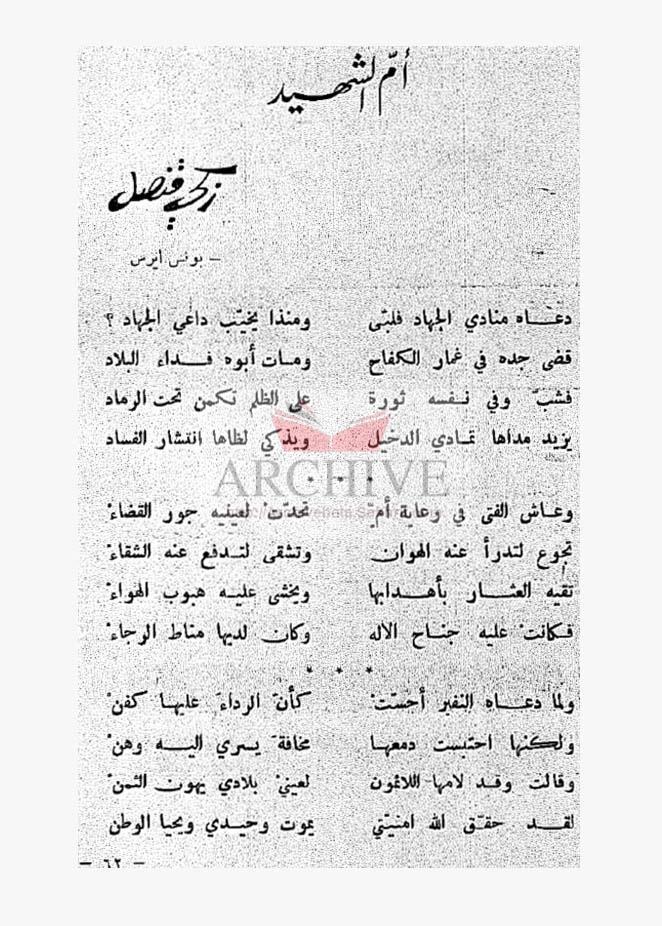 أمّ الشهيد
زكي قنصل
– بونس ايرس
دعاه منادي الجهاد فلبّى ومنذا يخيّب داعي الجهاد ؟
قضى جده في غمار الكفاح ومات أبوه فداء البلاد
فشبّ وفي نفسه ثورة على الظلم تكمن تحت الرماد
يزيد مداها تمادي الدخيل ويذكي لظاها انتشار الفساد
* * *
ARCHIVE
وعاش الفتى في رعاية أم تحدّت لعينيه جور القضاءْ
تجوع لتدرأ عنه الهوان وتشقى لتدفع عنه الشقاءْ
تقيه العثار بأهدابها ويخشى عليه هبوب الهواءْ
فكانت عليه جناح الاله وكان لديها مناط الرجاءْ
* * *
ولما دعاه النفير أحسّتْ كأنّ الرداءَ عليها كفنْ
ولكنها احتبست دمعها مخافة يسري اليه وهنْ
وقالت وقد لامها اللائمون لعينيْ بلادي يهون الثمنْ
لقد حقّق الله امنيّتي يموت وحيدي ويحيا الوطن
– ٦٢ –